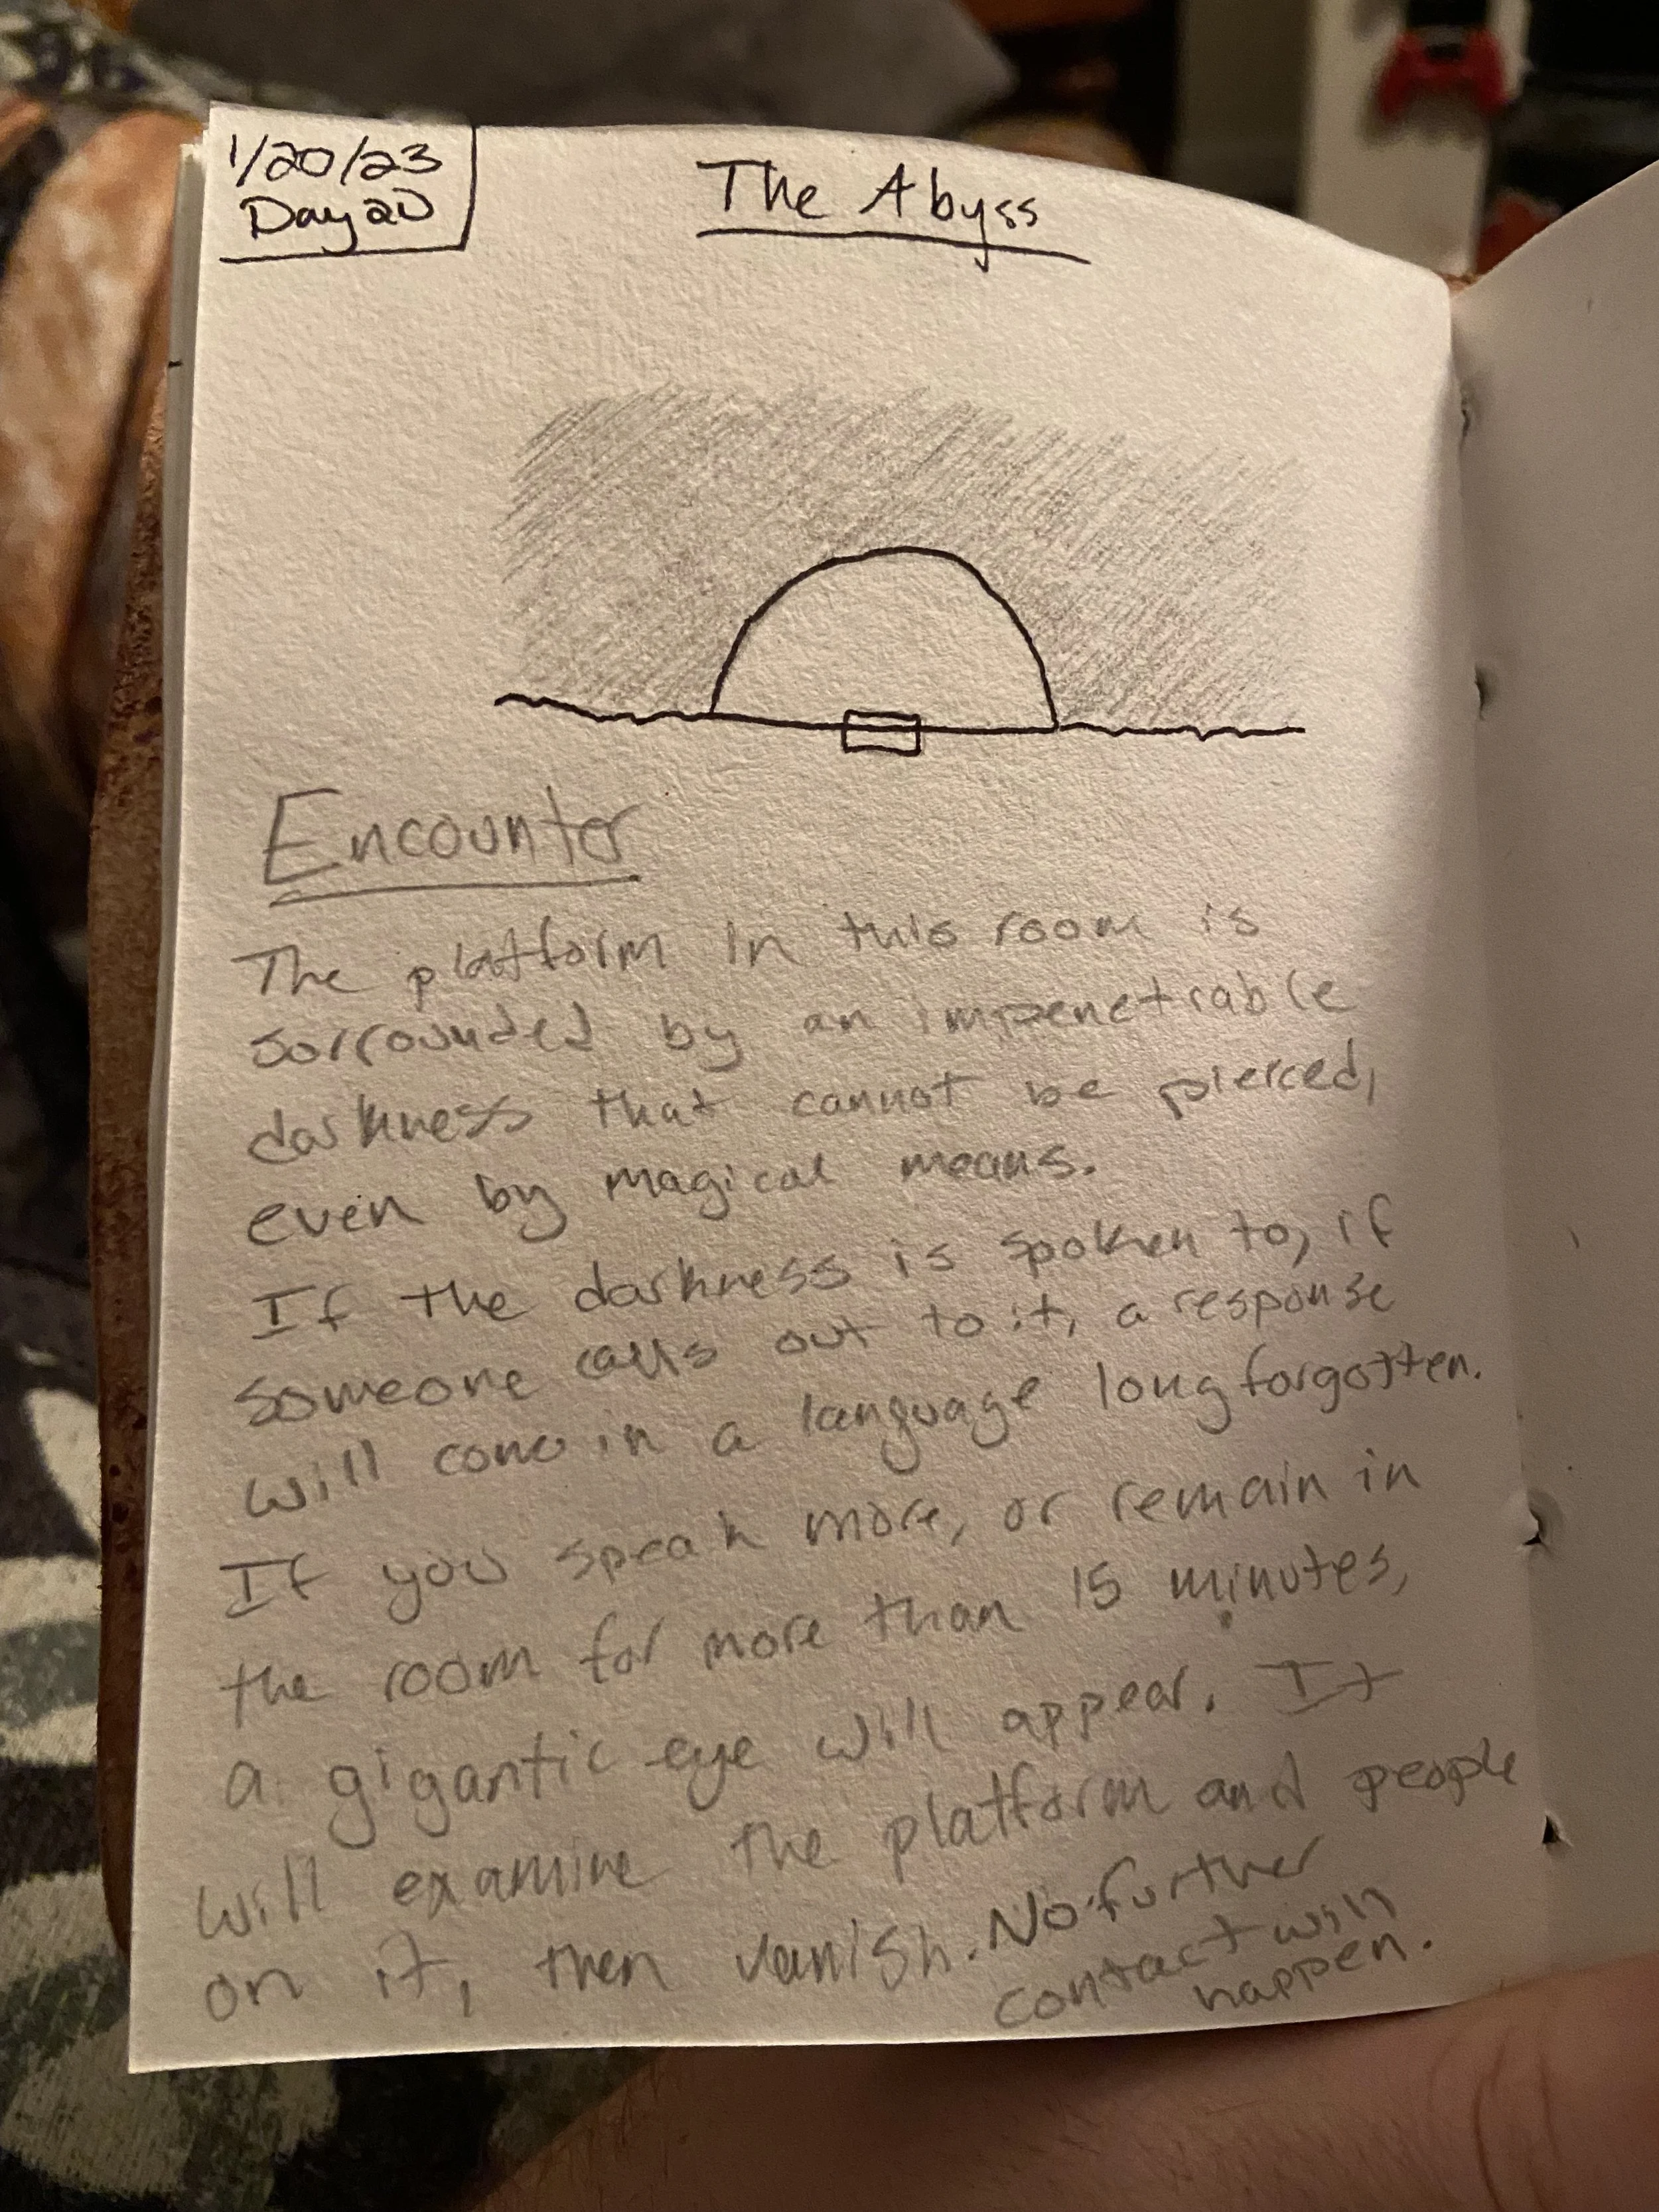 1/20/23
Day 20
The Abyss
Encounter
The platform in this room is
sorrounded by an impenetrable
darkness that cannot be pierced,
even by magical means.
If the darkness is spoken to, if
someone calls out to it, a response
will come in a language long forgotten.
If you speak more, or remain in
the room for more than 15 minutes,
a gigantic eye will appear. It
will examine the platform and people
on it, then vanish. No further
contact will
happen.